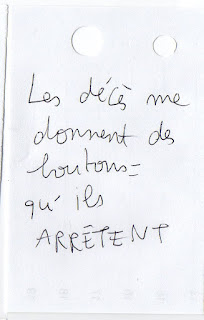 Les décès me
donnent des
boutons =
qu'ils
ARRÊTENT